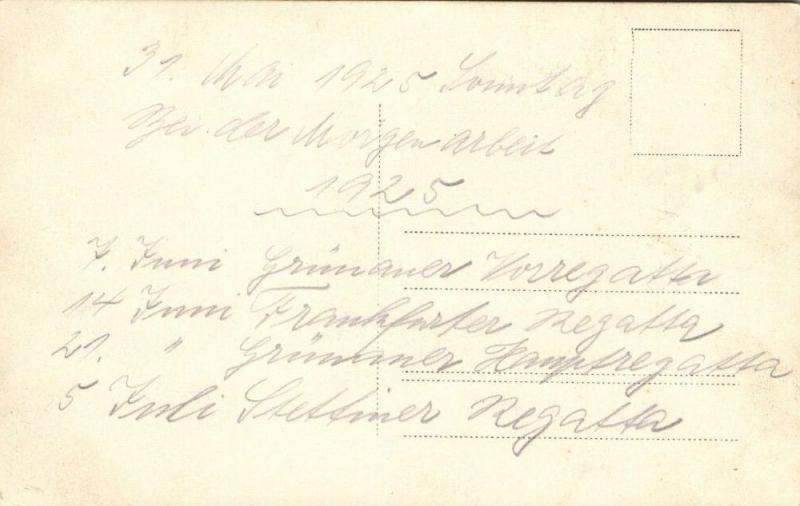 31. Mai 1925 Sonntag
Bei der Morgenarbeit
1925
7. Juni Grünauer Vorregatta
14 Juni Frankfurter Regatta
21. " Grünauer Hauptregatta
5 Juli Stettiner Regatta